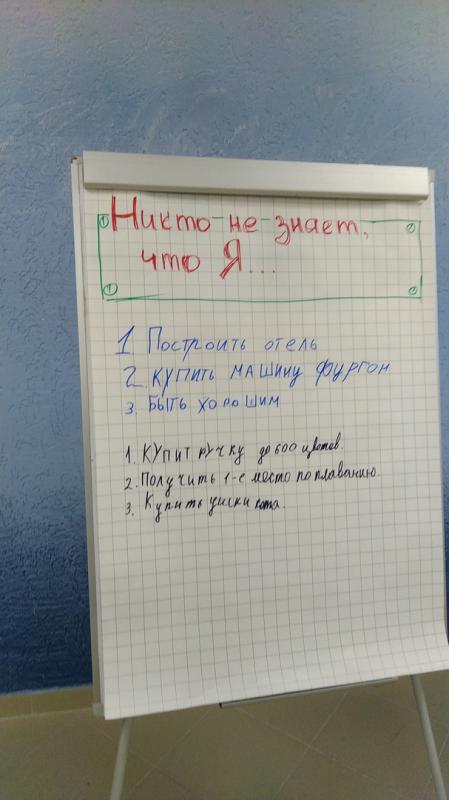 Никто не знает,
что Я...
1 Построить отель
2 КУПИТЬ МАШИНУ ФУРГОН
3. БЫТЬ ХОРОШИМ
1. КУПИТ РУЧКУ до 600 цветов.
2. Получить 1-е место по плаванию.
3. Купить уиски